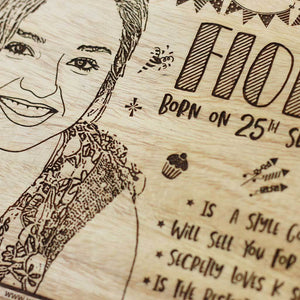 FIO
BORN ON 25TH SE
* IS A STYLE CO
* WILL SELL YOU FOR
* SECRETLY LOVES K S
IS THE BES